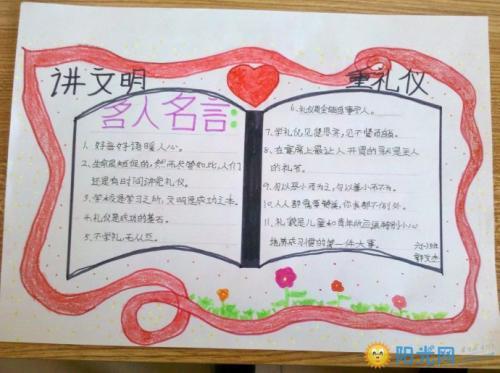 讲文明
重礼仪
名人名言:
1、好言好语暖人心。
2、生命是短促的,然而尽管如此,人们
还是有时间讲究礼仪。
3、学校是学习之所,文明是成功之本。
4、礼仪是成功的基石。
5、不学礼,无以立。
6、礼仪
7、学礼仪,见贤思齐,见不贤
8、在宴席上最让人开胃的就是主人
的礼节。
9、勿以恶小而为之,勿以善小而不为。
10、人人都需要
11、礼貌是儿童和青年所应该特别小心
地养成习惯的第一件大事。
阳光网